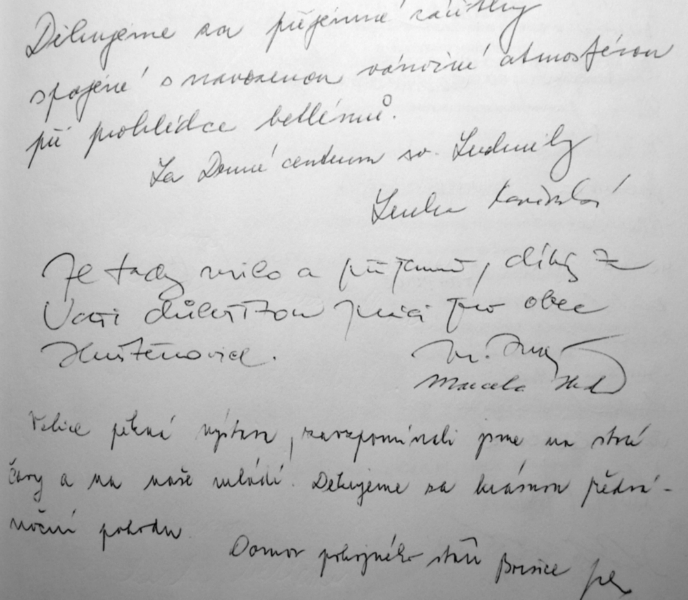 Děkujeme za příjemné zážitky
spojené s navozenou vánoční atmosférou
při prohlídce betlémů.
Za Denní centrum sv. Ludmily
Lenka
Je tady milo a příjemně, díky za
Vaši důležitou práci pro obec
Huštěnovice.
Marcela
Velice pěkná výstava, zavzpomínali jsme na staré
časy a na naše mládí. Děkujeme za krásnou předvá-
noční pohodu.
Domov pokojného stáří Boršice